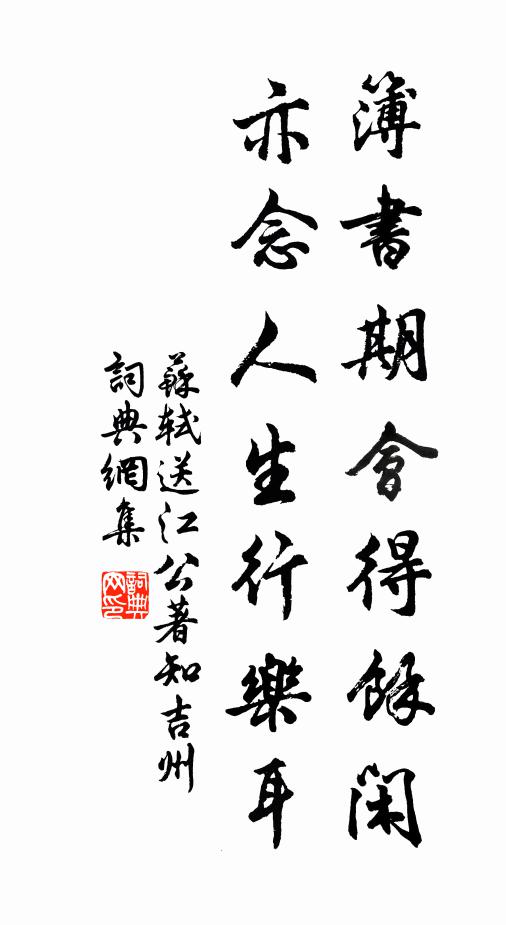 簿書期會得餘閑
亦念人生行樂耳
蘇軾送江公著知吉州
詞典網集
詞典网印